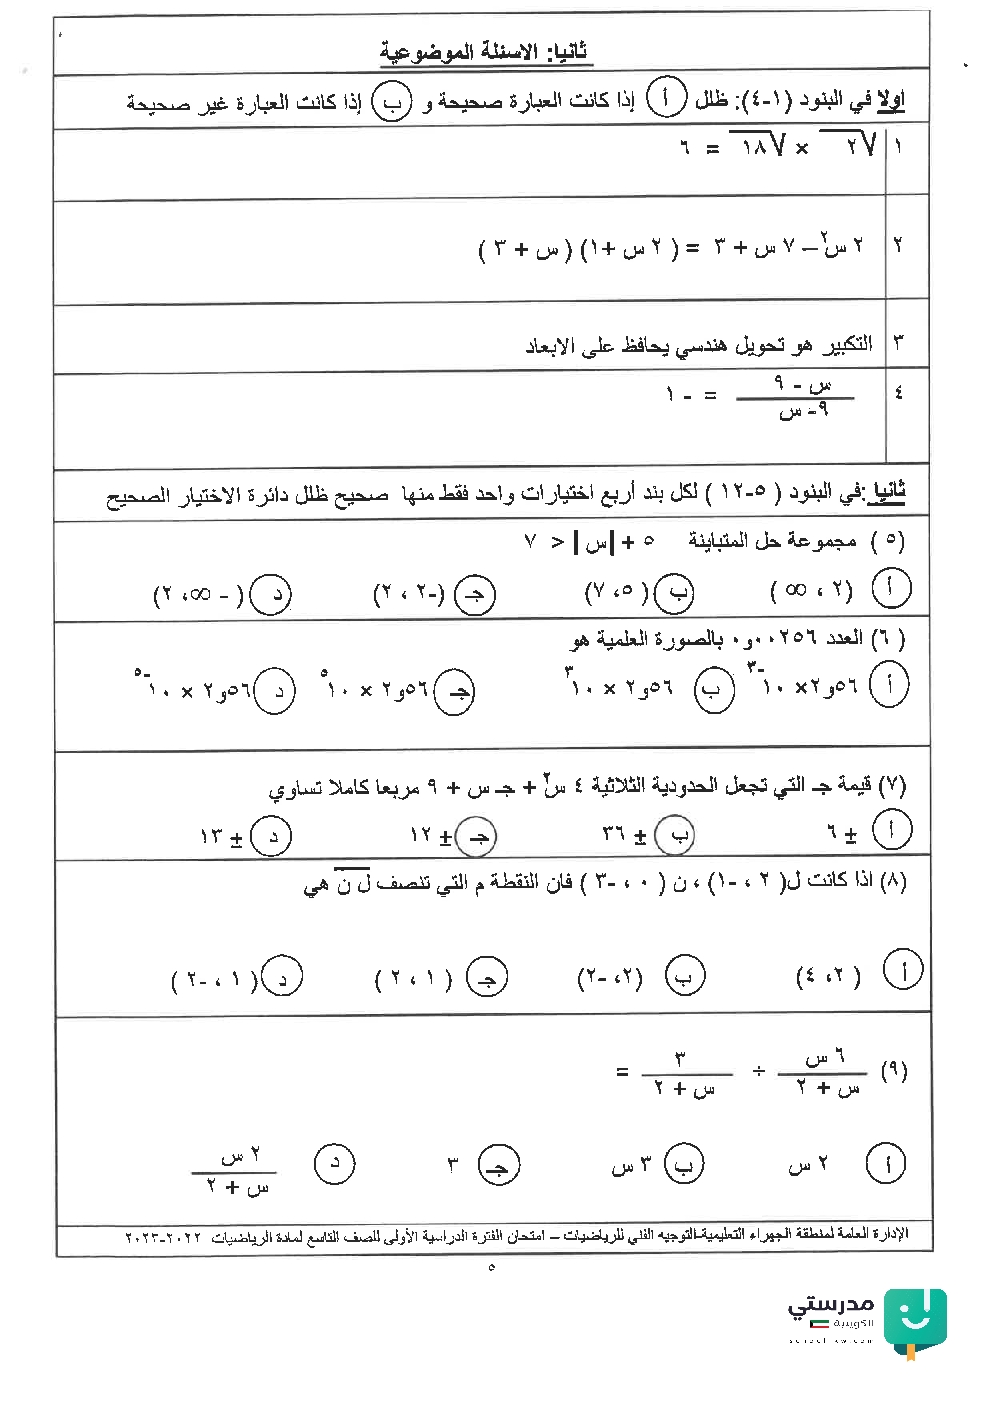 ثانيا: الاسئلة الموضوعية
اولا في البنود (١-٤): ظلل أ إذا كانت العبارة صحيحة و ب إذا كانت العبارة غير صحيحة
١ √٢ × √١٨ = ٦
٢ ٢ س٢ – ٧ س + ٣ = ( ٢ س + ١) ( س + ٣ )
٣ التكبير هو تحويل هندسي يحافظ على الابعاد
٤ س - ٩ / ٩ - س = - ١
ثانيا :في البنود ( ٥-١٢ ) لكل بند أربع اختيارات واحد فقط منها صحيح ظلل دائرة الاختيار الصحيح
(٥ ) مجموعة حل المتباينة ٥ + |س| < ٧
أ (٢ ، ∞ ) ب ( ٥، ٧) جـ (-٢ ، ٢) د ( - ∞، ٢)
( ٦) العدد ٠٠٢٥٦و٠ بالصورة العلمية هو
أ ٥٦و٢× ١٠-٣ ب ٥٦و٢ × ١٠٣ جـ ٥٦و٢ × ١٠٥ د ٥٦و٢ × ١٠-٥
(٧) قيمة جـ التي تجعل الحدودية الثلاثية ٤ س٢ + جـ س + ٩ مربعا كاملا تساوي
أ ± ٦ ب ± ٣٦ جـ ± ١٢ د ± ١٣
(٨) اذا كانت ل( ٢ ، -١) ، ن ( ٠ ، -٣ ) فان النقطة م التي تنصف ل ن هي
أ ( ٢، ٤) ب (٢، -٢) جـ ( ١ ، ٢ ) د ( ١ ، -٢ )
(٩) ٦ س / س + ٢ ÷ ٣ / س + ٢ =
أ ٢ س ب ٣ س جـ ٣ د ٢ س / س + ٢
الإدارة العامة لمنطقة الجهراء التعليمية-التوجيه الفني للرياضيات – امتحان الفترة الدراسية الأولى للصف التاسع لمادة الرياضيات ٢٠٢٢-٢٠٢٣
٥
مدرستي
الكويتية